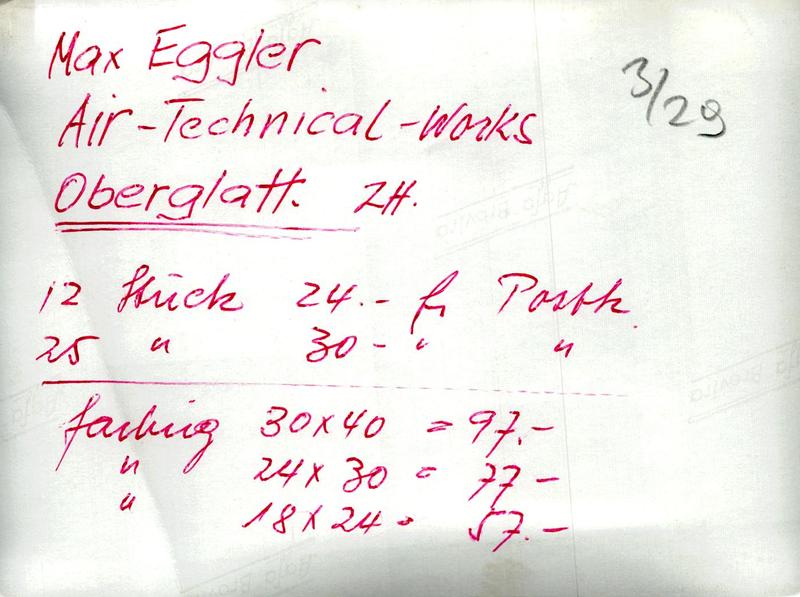 Max Eggler
3/29
Air-Technical-Works
Oberglatt. ZH.
12 Stück 24.- fr Postk.
25 " 30- " "
farbig 30x40 = 97.-
" 24x30 = 77-
" 18x24 = 57.-